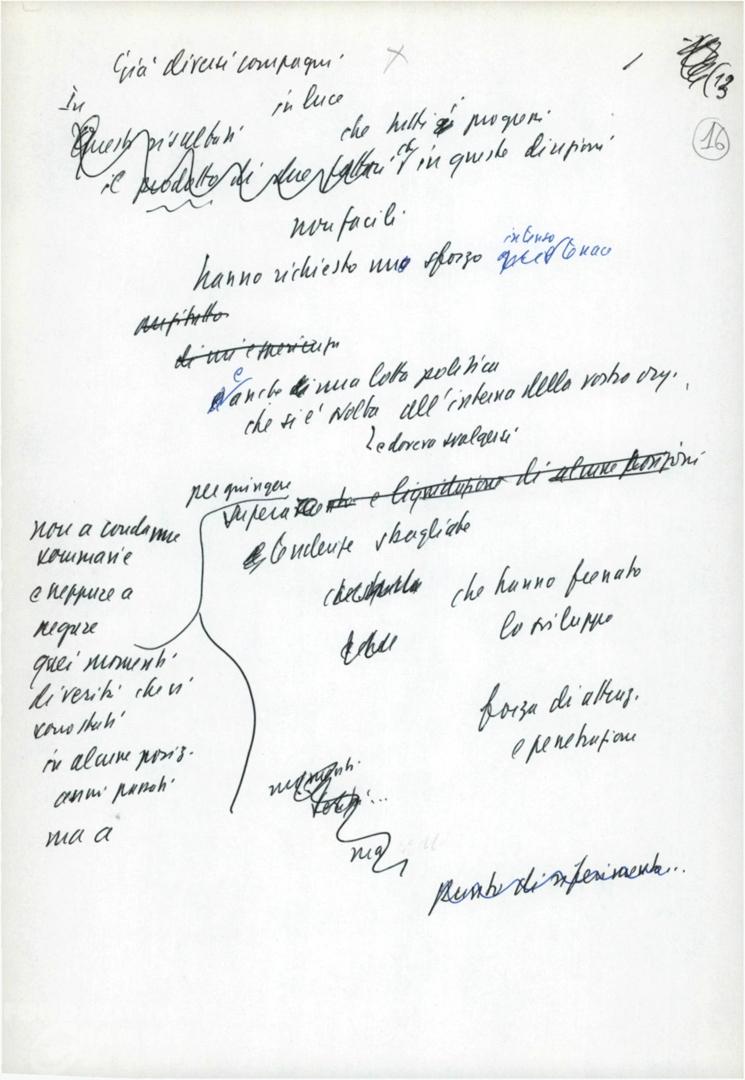 13
16
Già diversi compagni
In
in luce
Questi risultati
che tutti i progressi
il prodotto di due fattori
in queste direzioni
non facili
hanno richiesto uno sforzo
intenso
tenace
anzitutto
e anche di una lotta politica
che si è svolta all'interno della vostra org.
e doveva svolgersi
per giungere
superamento e liquidazione di alcune posizioni
e tendenze sbagliate
che hanno frenato
lo sviluppo
forza di attraz.
e penetrazione
non a condanne
sommarie
e neppure a
negare
quei momenti
di verità che vi
sono stati
in alcune posiz.
anni passati
ma a
momenti
ma
punto di riferimento..